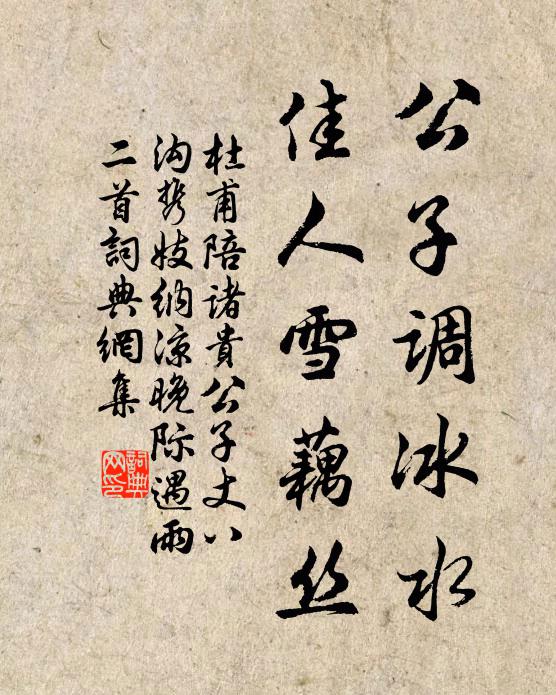 公子调冰水
佳人雪藕丝
杜甫陪諸貴公子丈八
沟携妓纳凉晚际遇雨
二首詞典網集
詞典网印